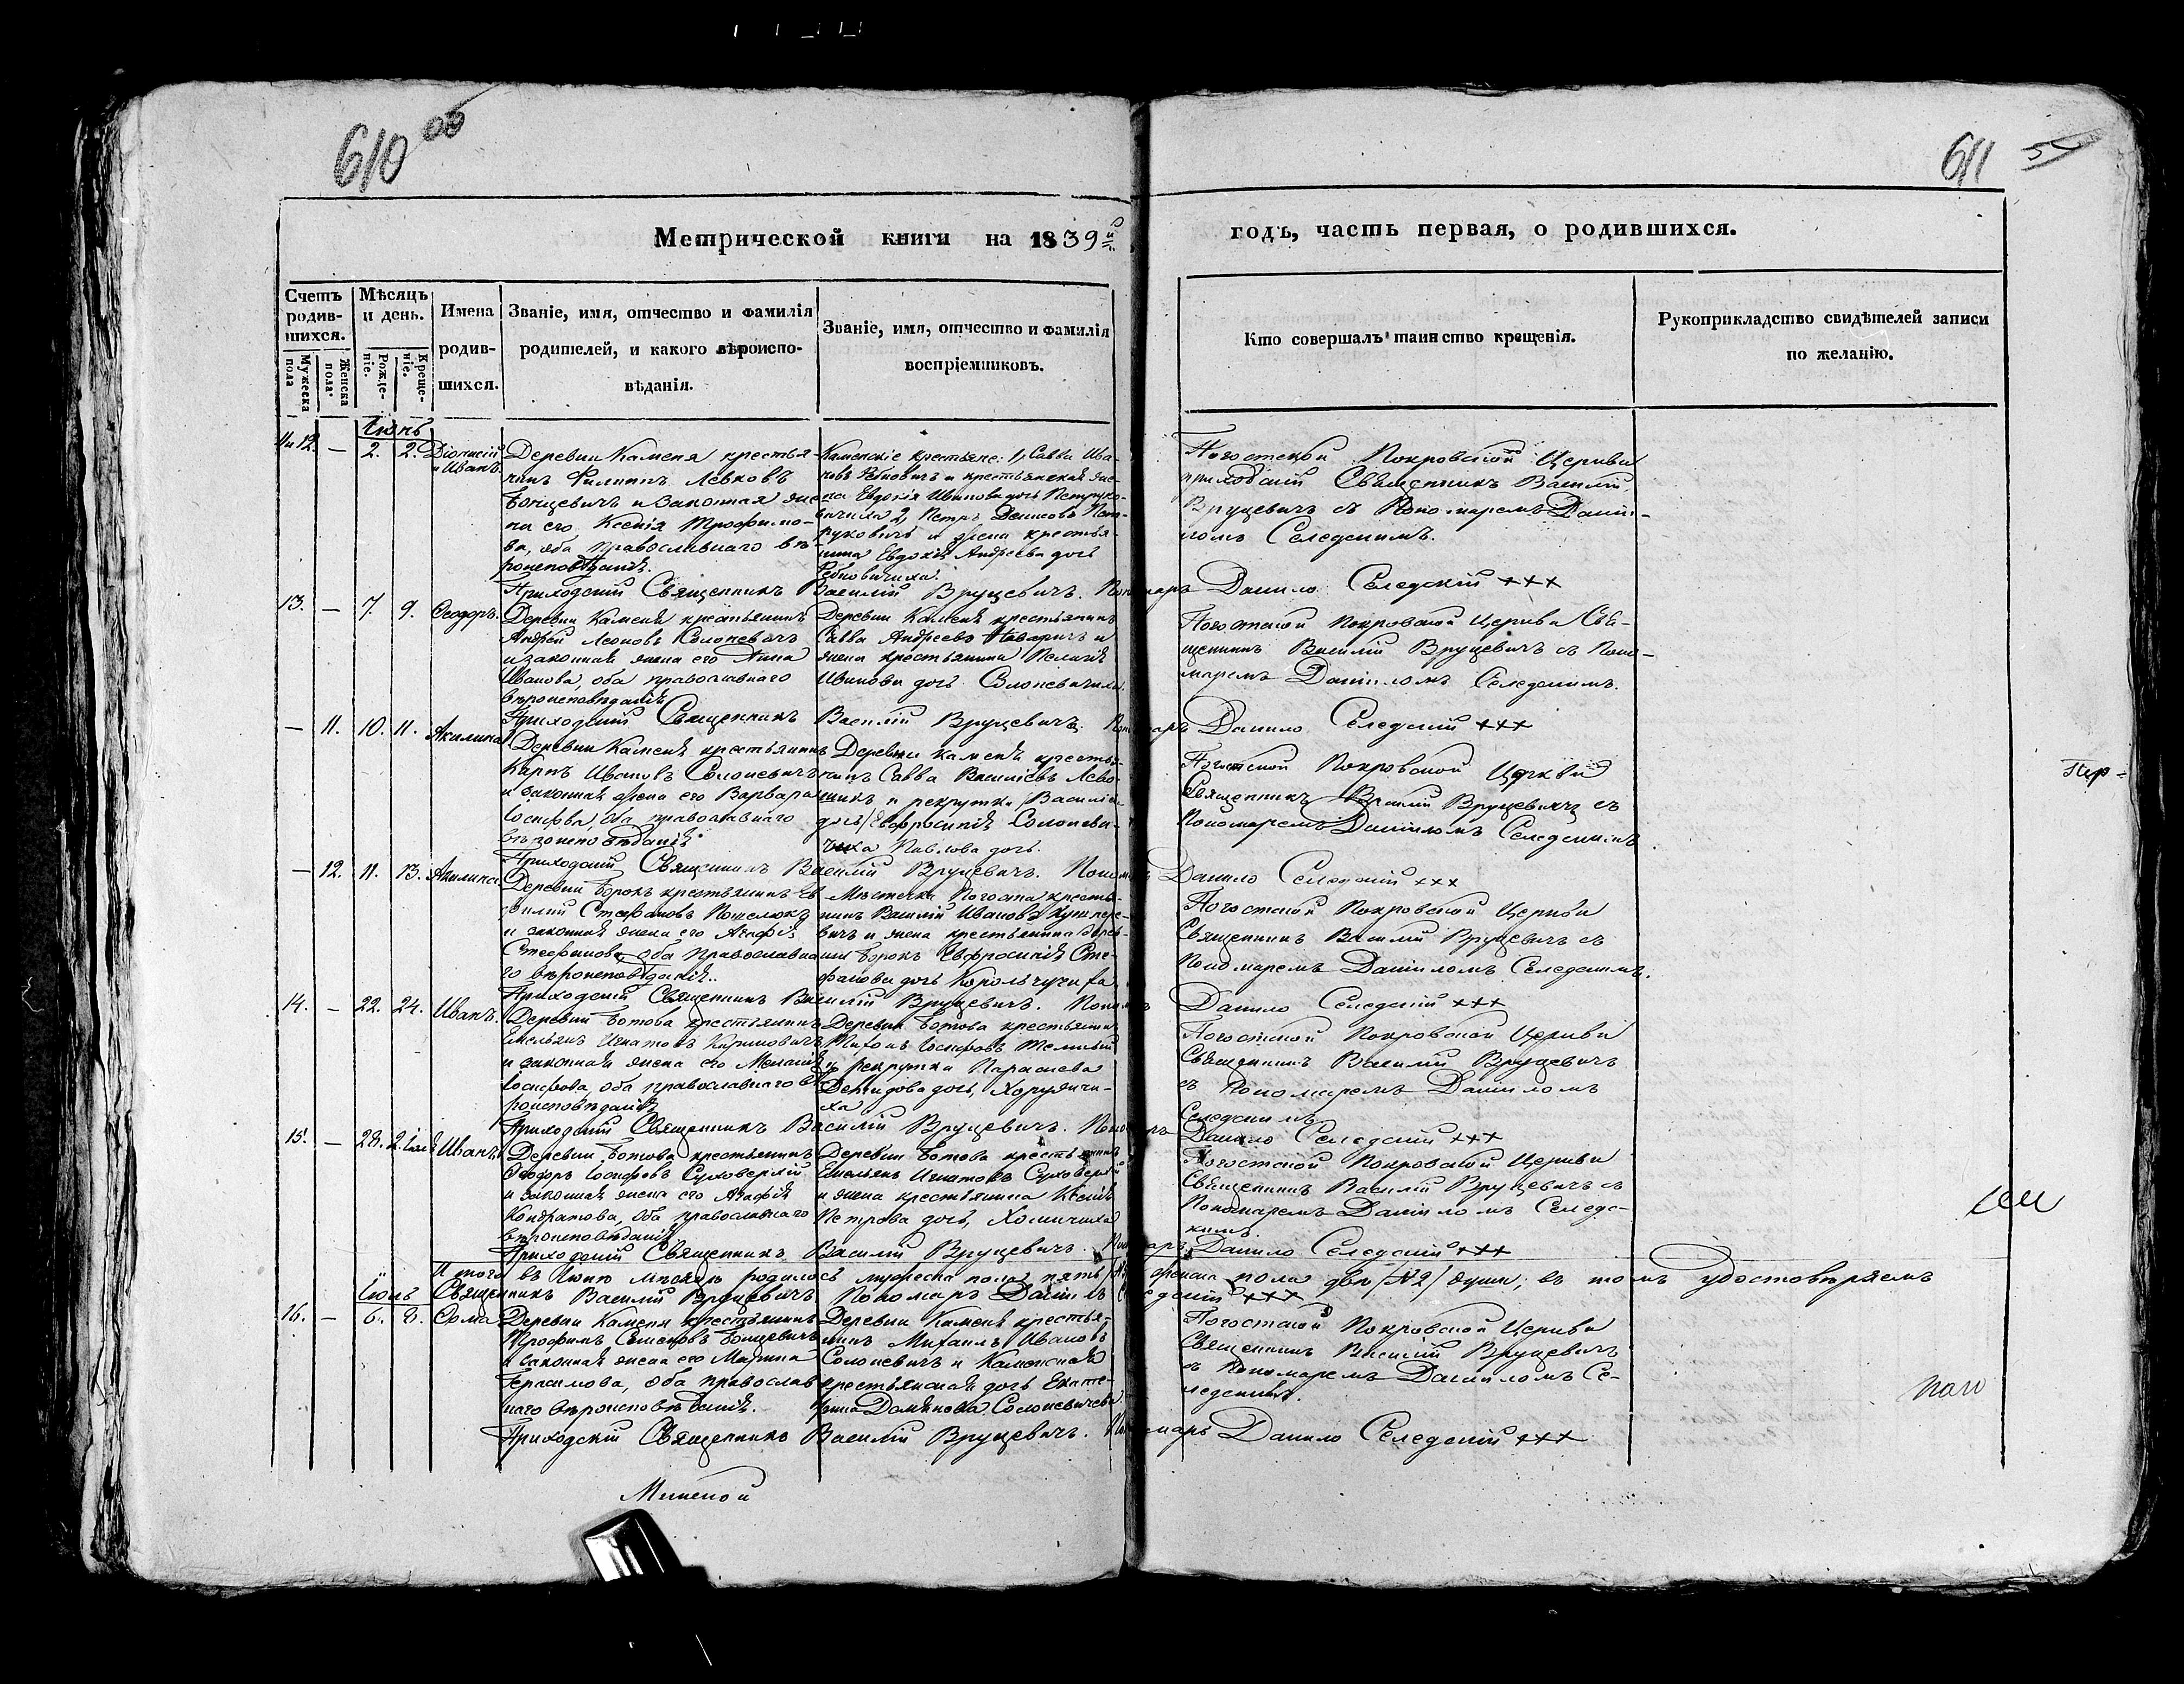 610 об
611
Метрической книги на 1839й
годъ, часть первая, о родившихся.
Счетъ родив-шихся.
Мужеска пола
Женска пола
Мѣсяцъ и день.
Рожде-ніе.
Креще-ніе.
Имена
родив-
шихся.
Званіе, имя, отчество и фамилія
родителей, и какого вѣроиспо-
вѣданія.
Званіе, имя, отчество и фамилія
воспріемниковъ.
Кто совершалъ таинство крещенія.
Рукоприкладство свидѣтелей записи
по желанію.
Іюнь
11 и 12. — 2. 2.
Діонисій
и Иванъ.
Деревни Каменя крестья-
нинъ Филиппъ Левковъ
и законная же-
на его Ксенія Трофимо-
ва, оба православнаго вѣ-
роисповѣданія.
Каменскіе крестьяне: 1, Савва Ива-
новъ и крестьянская же-
на Евдокія Иванова дочь Петруко-
вичиха 2, Петръ Денисовъ Пет-
руковичъ и жена крестья-
нина Евдокія Андреева дочь
Погостской Покровской Церкви
приходскій Священникъ Василій
Вруцевичъ съ Пономаремъ Дании-
ломъ Селедскимъ.
Приходскій Священникъ Василій Вруцевичъ. Пономарь Данило Селедскій +++
13. — 7. 9. Ѳеодоръ.
Деревни Каменя крестьянинъ
Андрей Леоновъ Солоневичъ
и законная жена его Анна
Иванова, оба православнаго
вѣроисповѣданія
Деревни Каменя крестьянинъ
Савва Андреевъ и
жена крестьянина Пелагія
Иванова дочь Солоневичиха.
Погостской Покровской Церкви Свя-
щенникъ Василій Вруцевичъ съ Поно-
маремъ Данииломъ Селедскимъ.
Приходскій Священникъ Василій Вруцевичъ. Пономарь Данило Селедскій +++
— 11. 10. 11. Акилина
Деревни Каменя крестьянинъ
Карпъ Ивановъ Солоневичъ
и законная жена его Варвара
Іосифова оба православнаго
вѣроисповѣданія.
Деревни Каменя крестья-
нинъ Савва Василіевъ Лево-
шикъ и рекрутка
дочь Евфросинія Солоневи-
чиха Павлова дочь.
Погостской Покровской Церкви
Священникъ Василій Вруцевичъ съ
Пономаремъ Данииломъ Селедскимъ
Приходскій Священникъ Василій Вруцевичъ. Пономарь Данило Селедскій +++
— 12. 11. 13. Акилина
Деревни Борокъ крестьянинъ
Стефановъ
и законная жена его Агафія
Стефанова, оба Православна-
го вѣроисповѣданія.
Мѣстечка Погоста крестья-
нинъ Василій Ивановъ
вичъ и жена крестьянина дерев-
ни Борокъ Евфросинія Сте-
фанова дочь
Погостской Покровской Церкви
Священникъ Василій Вруцевичъ съ
Пономаремъ Данииломъ Селедскимъ.
Приходскій Священникъ Василій Вруцевичъ. Пономарь Данило Селедскій +++
14. — 22. 24. Иванъ.
Деревни Ботова крестьянинъ
Емельянъ Игнатовъ
и законная жена его Меланія
Іосифова, оба православнаго вѣ-
роисповѣданія
Деревни Ботова крестьянинъ
Тихонъ Іосифовъ
и рекрутка Параскева
Демидова дочь, Хорунжи-
ха
Погостской Покровской Церкви
Священникъ Василій Вруцевичъ
съ Пономаремъ Данииломъ
Селедскимъ
Приходскій Священникъ Василій Вруцевичъ. Пономарь Данило Селедскій +++
15. — 28. 2. Іюля Иванъ
Деревни Ботова крестьянинъ
Ѳеодоръ Іосифовъ Суховерхій
и законная жена его Агафія
Кондратова, оба православнаго
вѣроисповѣданія
Деревни Ботова крестьянинъ
Емельянъ Игнатовъ Суховерхій
и жена крестьянина Ксенія
Петрова дочь, Хомичиха
Погостской Покровской Церкви
Священникъ Василій Вруцевичъ съ
Пономаремъ Данииломъ Селед-
скимъ.
Приходскій Священникъ Василій Вруцевичъ. Пономарь Данило Селедскій +++
Итого въ Іюнѣ мѣсяцѣ родилось мужеска пола пять женска пола двѣ /№2/ души; въ томъ удостовѣряемъ
Священникъ Василій Вруцевичъ Пономарь Даниилъ Селедскій +++
Іюль
16. — 6. 8. Ѳома
Деревни Каменя крестьянинъ
Трофимъ Семеновъ
и законная жена его Марина
Герасимова, оба православ-
наго вѣроисповѣданія.
Деревни Каменя крестья-
нинъ Михаилъ Ивановъ
Солоневичъ и Каменская
крестьянская дочь Екате-
рина Домянова Солоневичева.
Погостской Покровской Церкви
Священникъ Василій Вруцевичъ
съ Пономаремъ Данииломъ Се-
ледскимъ.
Приходскій Священникъ Василій Вруцевичъ. Пономарь Данило Селедскій +++
Минской